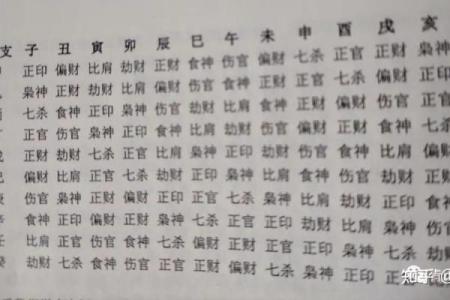 支 子 丑 寅 卯 辰 巳 午 未 申 酉 戌 亥
正印 偏财 比肩 劫财 正财 食神 伤官 偏财 七杀 正官 正财 枭神
枭神 正财 劫财 比肩 偏财 伤官 食神 正财 正官 七杀 偏财 正印
七杀 食神 正印 枭神 伤官 比肩 劫财 食神 偏财 正财 伤官 七杀
丁 正官 伤官 枭神 正印 食神 劫财 比肩 伤官 正财 偏财 食神 正官
戊 正财 劫财 七杀 正官 比肩 枭神 正印 劫财 食神 伤官 比肩 偏财
己 偏财 比肩 正官 七杀 劫财 正印 枭神 比肩 伤官 食神 劫财 正财
庚 伤官 枭神 正财 偏财 正印 七杀 正官 枭神 比肩 劫财 正印 食神
辛 食神 正印 偏财 正财 枭神 正官 七杀 正印 劫财 比肩 枭神 伤官
壬 比肩 正官 伤官 食神 七杀 偏财 正财 正官 枭神 正印 七杀
癸 劫财 七杀 食神 伤官 正官 正财 偏财 七杀 正印 枭神 正官